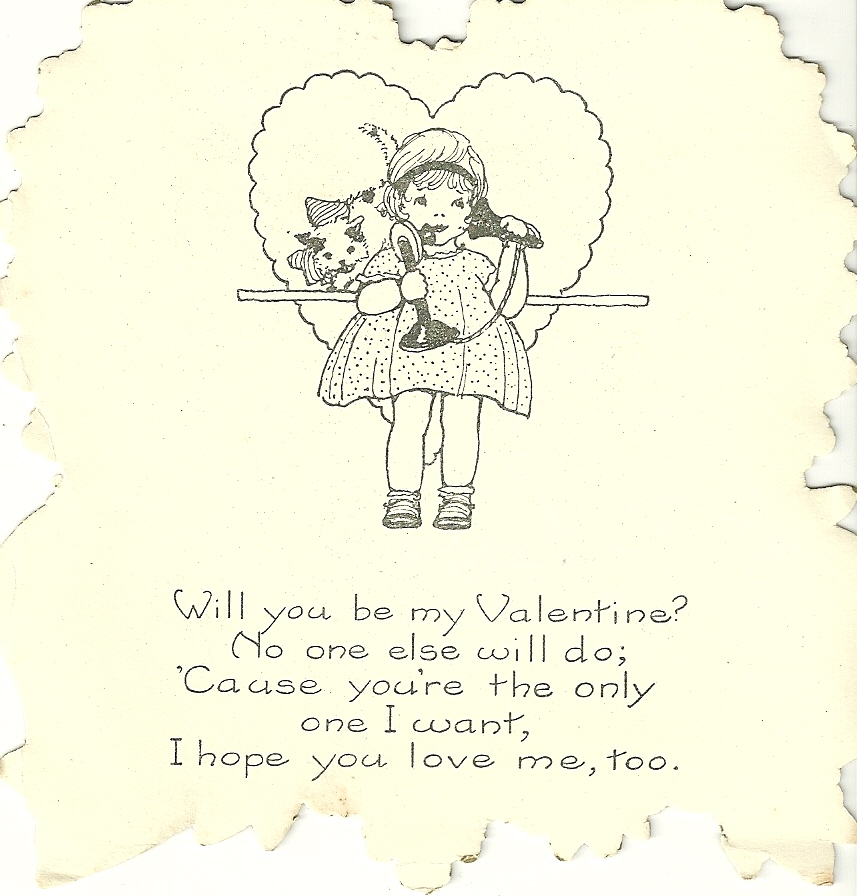 Will you be my Valentine?
No one else will do;
'Cause you're the only
one I want,
I hope you love me, too.